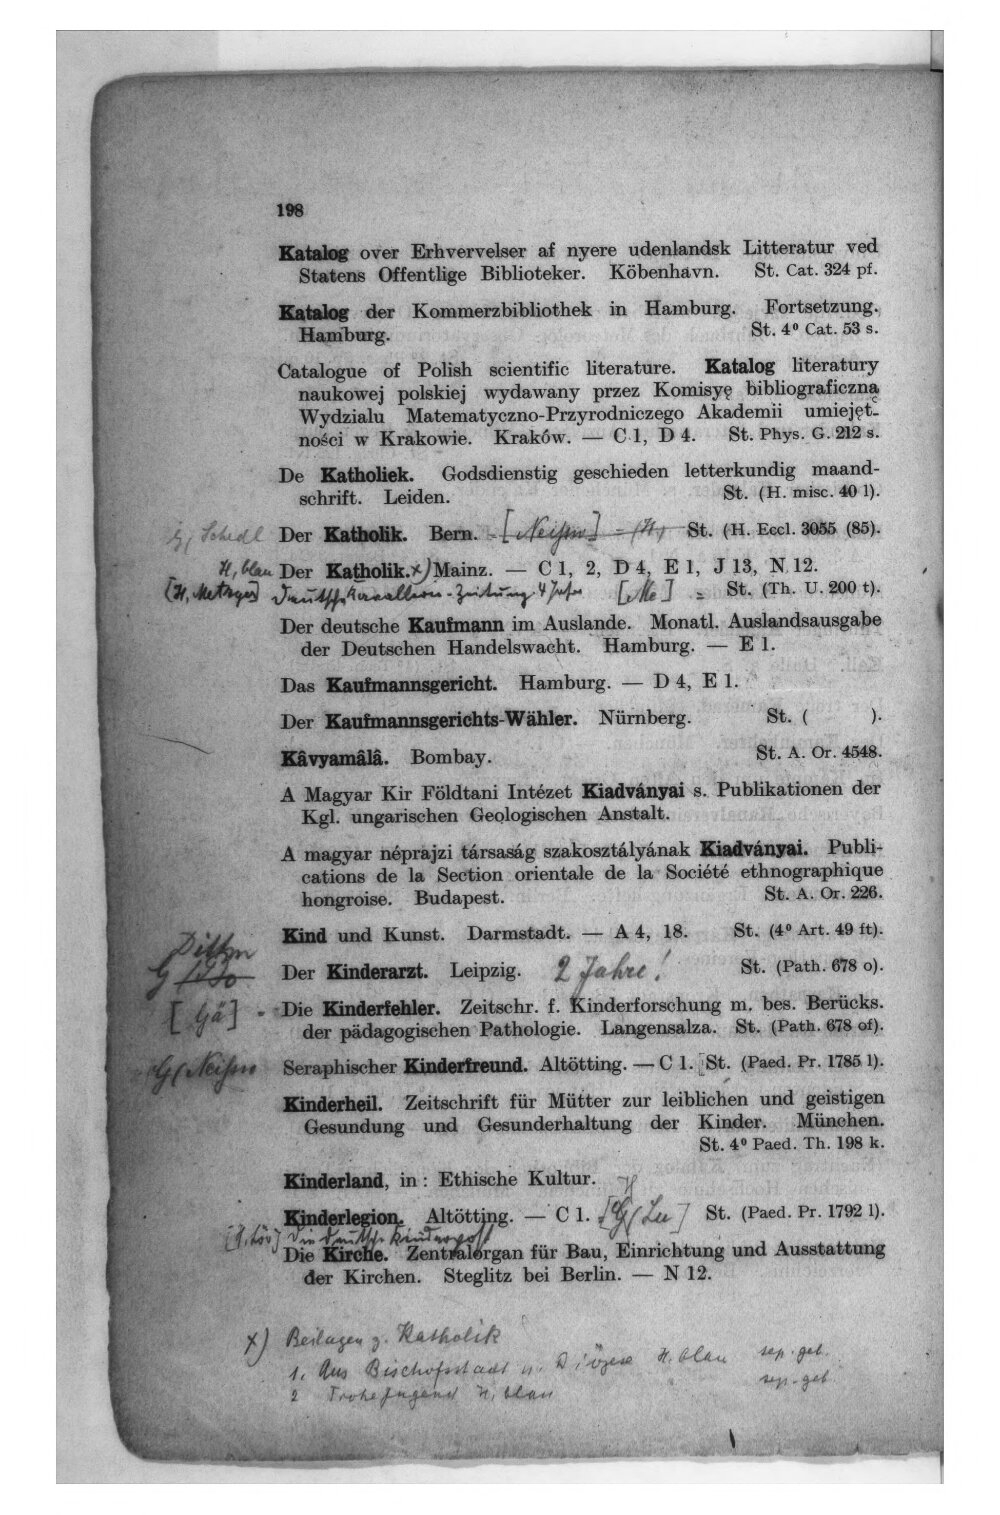 198
Katalog over Erhvervelser af nyere udenlandsk Litteratur ved
Statens Offentlige Biblioteker. Köbenhavn. St. Cat. 324 pf.
Katalog der Kommerzbibliothek in Hamburg. Fortsetzung.
Hamburg. St. 4⁰ Cat. 53 s.
Catalogue of Polish scientific literature. Katalog literatury
naukowej polskiej wydawany przez Komisyę bibliograficzną
Wydzialu Matematyczno-Przyrodniczego Akademii umiejęt-
ności w Krakowie. Kraków. — C 1, D 4. St. Phys. G. 212 s.
De Katholiek. Godsdienstig geschieden letterkundig maand-
schrift. Leiden. St. (H. misc. 40 l).
G, Schedl Der Katholik. Bern. [Neißn] = (H, St. (H. Eccl. 3055 (85).
H, blau Der Katholik. x) Mainz. — C 1, 2, D 4, E 1, J 13, N 12.
[H, Metzger] Deutsche Kavallerie-Zeitung. 4 Jahre [Me] = St. (Th. U. 200 t).
Der deutsche Kaufmann im Auslande. Monatl. Auslandsausgabe
der Deutschen Handelswacht. Hamburg. — E 1.
Das Kaufmannsgericht. Hamburg. — D 4, E 1.
Der Kaufmannsgerichts-Wähler. Nürnberg. St. ( ).
Kâvyamâlâ. Bombay. St. A. Or. 4548.
A Magyar Kir Földtani Intézet Kiadványai s. Publikationen der
Kgl. ungarischen Geologischen Anstalt.
A magyar néprajzi társaság szakosztályának Kiadványai. Publi-
cations de la Section orientale de la Société ethnographique
hongroise. Budapest. St. A. Or. 226.
Kind und Kunst. Darmstadt. — A 4, 18. St. (4⁰ Art. 49 ft).
Dittm
G Der Kinderarzt. Leipzig. 2 Jahre! St. (Path. 678 o).
[Gä] - Die Kinderfehler. Zeitschr. f. Kinderforschung m. bes. Berücks.
der pädagogischen Pathologie. Langensalza. St. (Path. 678 of).
G (Neißn Seraphischer Kinderfreund. Altötting. — C 1. [St. (Paed. Pr. 1785 l).
Kinderheil. Zeitschrift für Mütter zur leiblichen und geistigen
Gesundung und Gesunderhaltung der Kinder. München.
St. 4⁰ Paed. Th. 198 k.
Kinderland, in: Ethische Kultur.
H
Kinderlegion. Altötting. — C 1. [G (Lu] St. (Paed. Pr. 1792 l).
Die deutsche Kinderpost
Die Kirche. Zentralorgan für Bau, Einrichtung und Ausstattung
der Kirchen. Steglitz bei Berlin. — N 12.
x) Beilagen z. Katholik
1. Aus Bischofsstadt u. Diözese H. blau sep. geb.
2 Frohe Jugend H, blau sep. geb